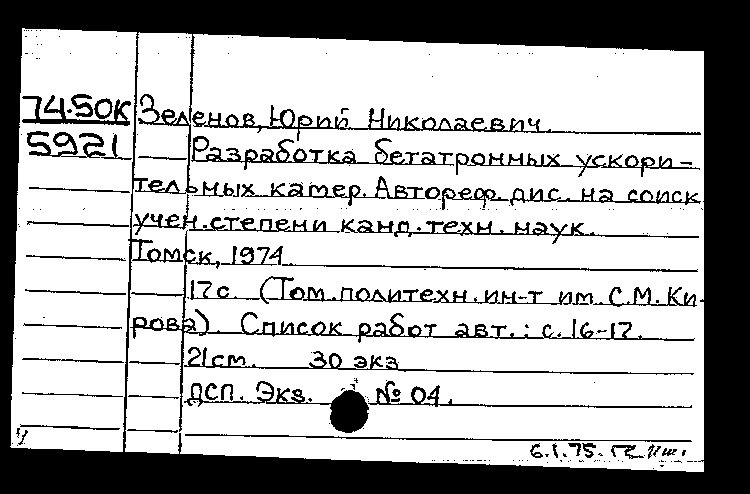 74-50К Зеленов, Юрий Николаевич.
5921 Разработка бетатронных ускори-
тельных камер. Автореф. дис. на соиск
учен. степени канд. техн. наук.
Томск, 1974
17с. (Том. политехн. ин-т им. С.М. Ки-
рова). Список работ авт.: с. 16-17.
21см. 30 экз
ДСП. Экз. № 04.
6.1.75.